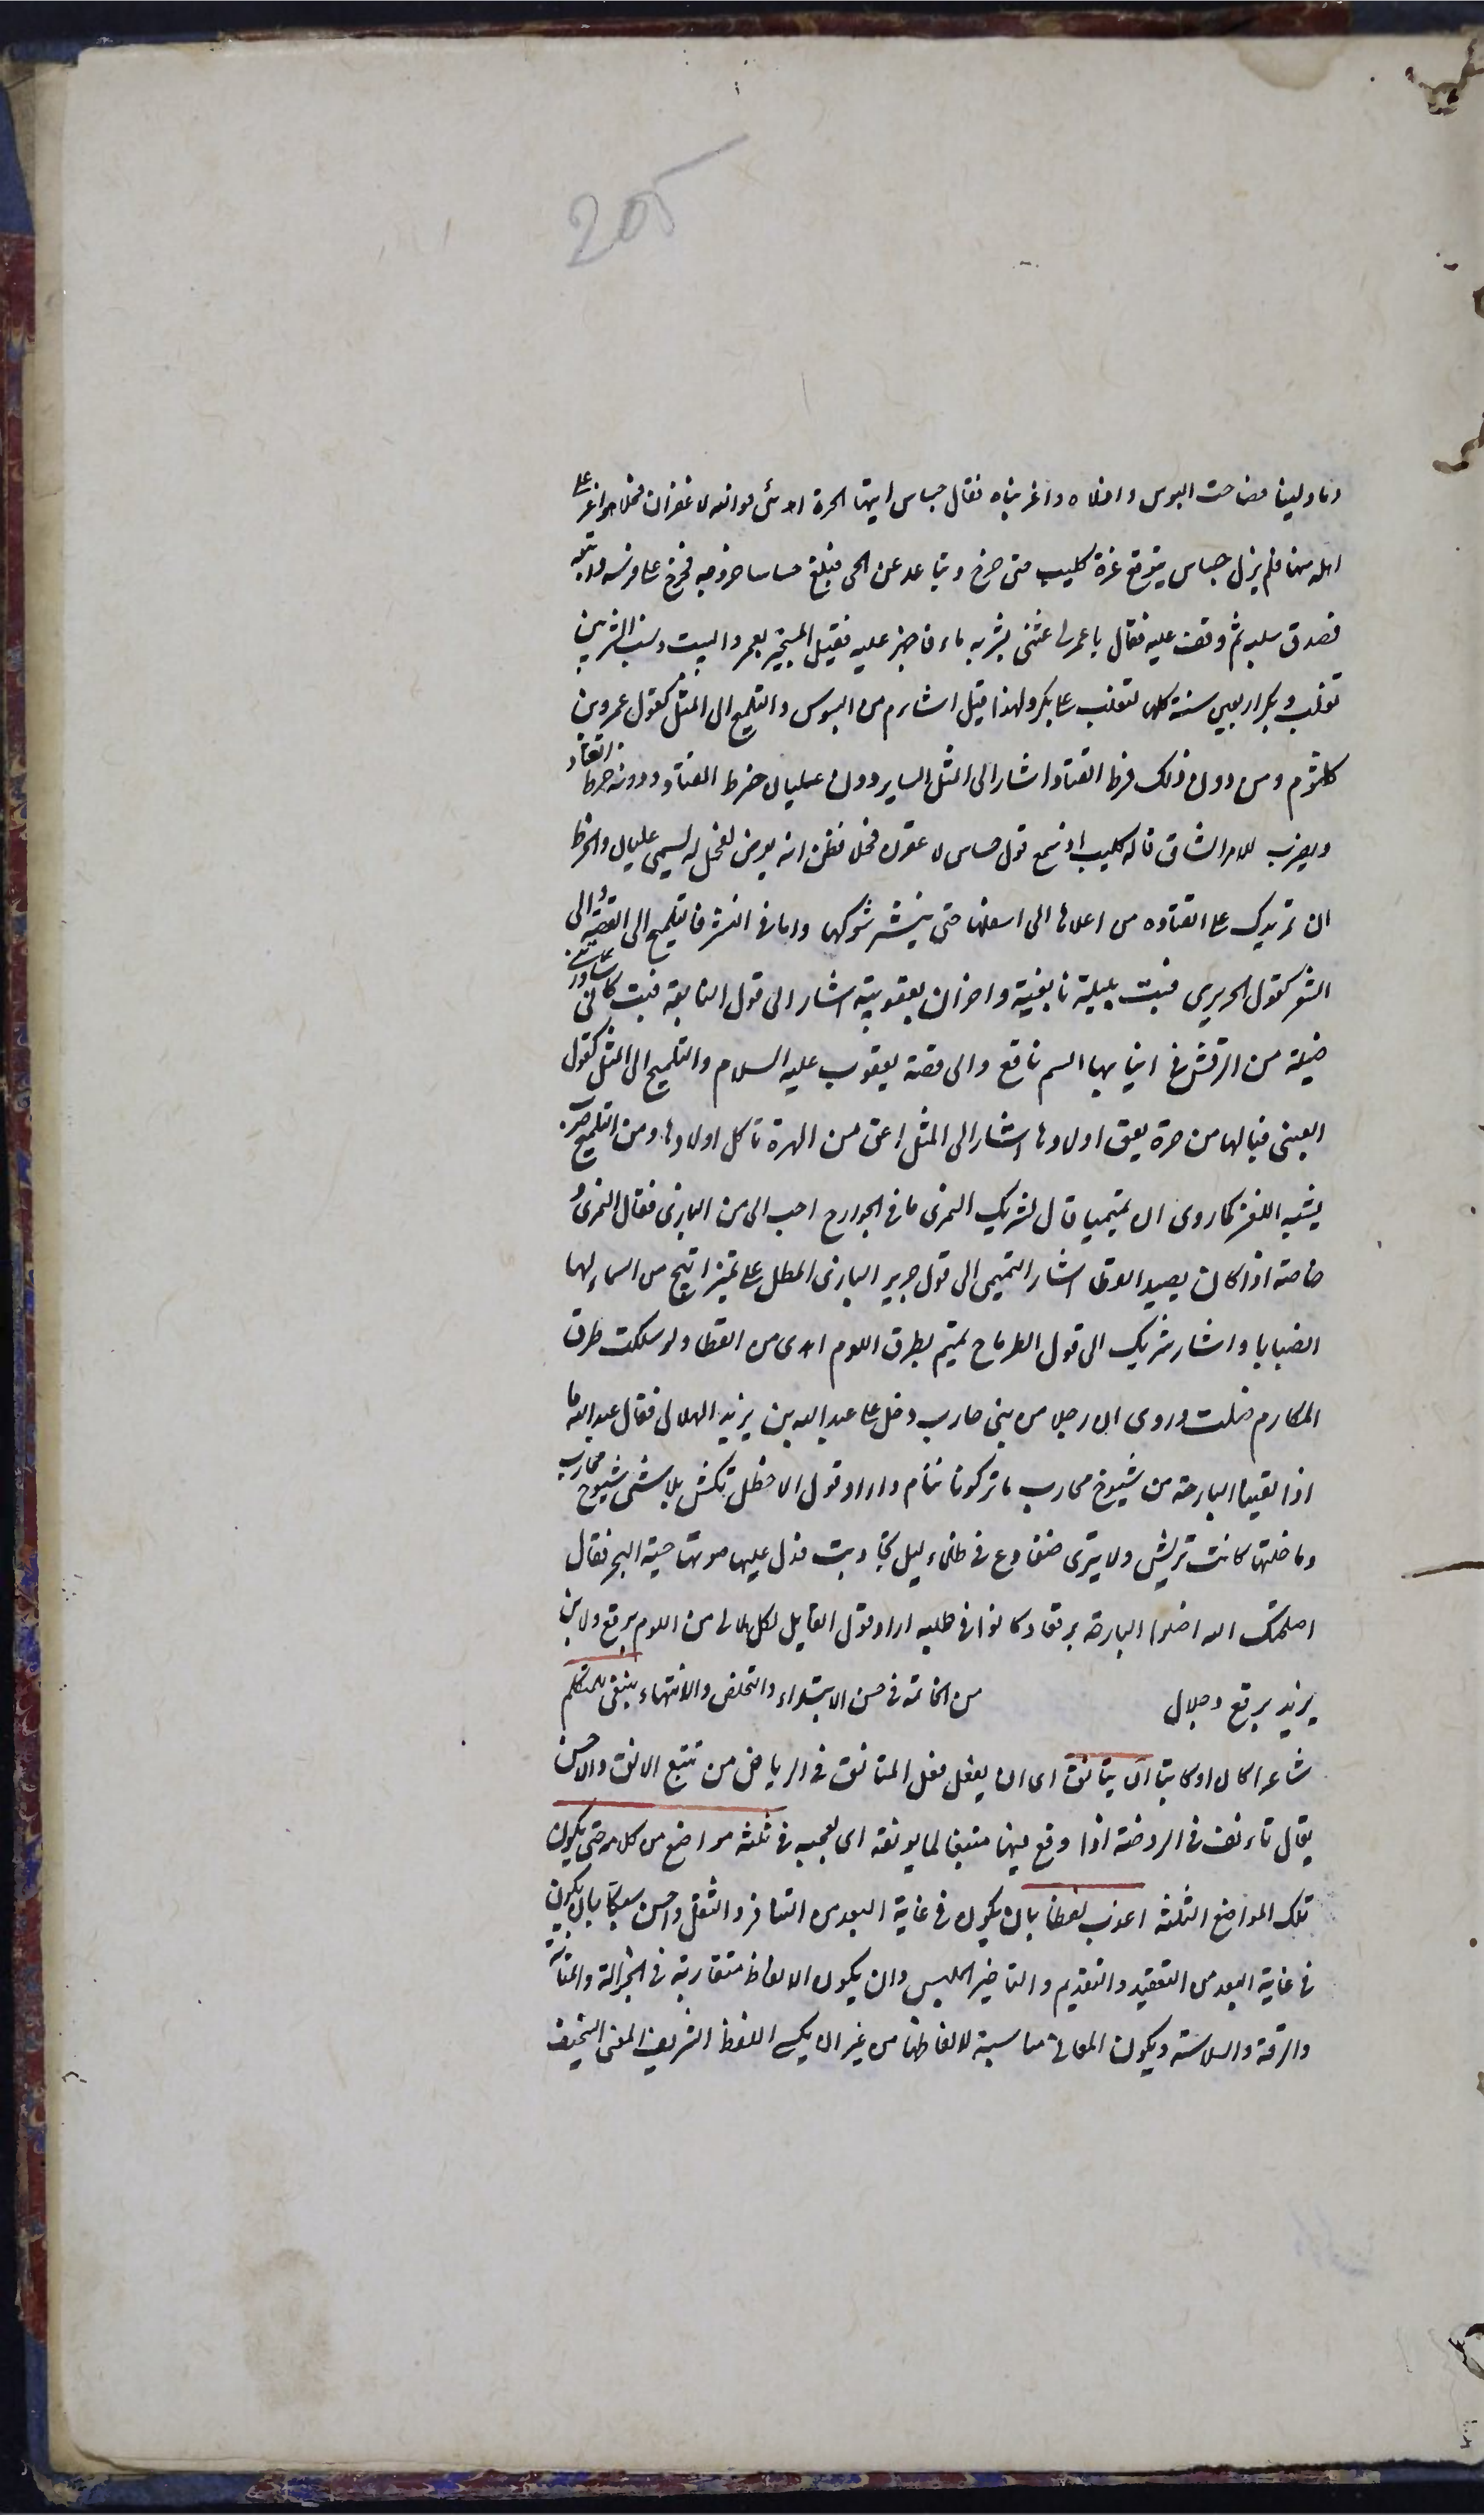 205
دما ولبنا فصاحت البسوس واذلاه واغربتاه فقال جساس ايتها الحرة اهدئى فوالله لاعقرن فحلا هو اعز على
اهله منها فلم يزل جساس يتوقع غرة كليب حتى خرج وتباعد عن الحى فبلغ جساسا خروجه فخرج على فرسه واتبعه
فصدق صلبه ثم وقف عليه فقال يا عمرو اغثنى بشربة ماء فاجهز عليه فقيل المستجير بعمرو البيت ونشب الشر بين
تغلب وبكر اربعين سنة كلها لتغلب على بكر ولهذا قيل اشأم من البسوس والتلميح الى المثل كقول عمرو بن
كلثوم ومن دون ذلك خرط القتاد اشار الى المثل الساير دون عليان خرط القتاد ودونه خرط القتاد
ويضرب للامر الشاق قاله كليب اذ سمع قول جساس لاعقرن فحلا فظن انه يعرض لفحل له يسمى عليان والخرط
ان تمر يدك على القتاده من اعلاها الى اسفلها حتى ينتشر شوكها واما فى النثر فالتلميح الى القصة والى
الشعر كقول الحريرى فبت بليلة نابغية واحزان يعقوبية اشار الى قول النابغة فبت كانى ساورتنى
ضيلة من الرقش فى انيابها السم ناقع والى قصة يعقوب عليه السلام والتلميح الى المثل كقول
العينى فيالها من هرة يعق اولادها اشار الى المثل اعق من الهرة تاكل اولادها ومن التلميح ضرب
يشبه اللغز كما روى ان تميميا قال لشريك النمرى ما فى الجوارح احب الى من البازى فقال النمرى و
خاصة اذا كان يصيد القطا اشار التميمى الى قول جرير البازى المطل على نمير اتيح من السماء لها
انصبابا واشار شريك الى قول الطرماح تميم بطرق اللوم اهدى من القطا ولو سلكت طرق
المكارم ضلت وروى ان رجلا من بنى محارب دخل على عبد الله بن يزيد الهلالى فقال عبد الله ما
اذا لقينا البارحة من شيوخ محارب ما تركونا ننام واراد قول الاخطل تكش بلا شئ شيوخ محارب
وما خلتها كانت تريش ولا تبرى ضفادع فى ظلماء ليل تجاوبت فدل عليها صوتها حية البحر فقال
اصلحك الله اضلوا البارحة برقعا وكانوا فى طلبه اراد قول القايل لكل هلالى من اللوم برقع ولابن
يزيد برقع وجلال من الخاتمة فى حسن الابتداء والتخلص والانتهاء ينبغى للمتكلم
شاعرا كان او كاتبا ان يتانق اى ان يفعل فعل المتانق فى الرياض من تتبع الانق والاحسن
يقال تانق فى الروضة اذا وقع فيها متتبعا لما يونقه اى يعجبه فى ثلثة مواضع من كلامه حتى يكون
تلك المواضع الثلثة اعذب لفظا بان يكون فى غاية البعد من التنافر والثقل واحسن سبكا بان يكون
فى غاية البعد من التعقيد والتقديم والتاخير الملبس وان يكون الالفاظ متقاربة فى الجزالة والمتانة
والرقة والسلاسة ويكون المعانى مناسبة لالفاظها من غير ان يكسى اللفظ الشريف المعنى السخيف